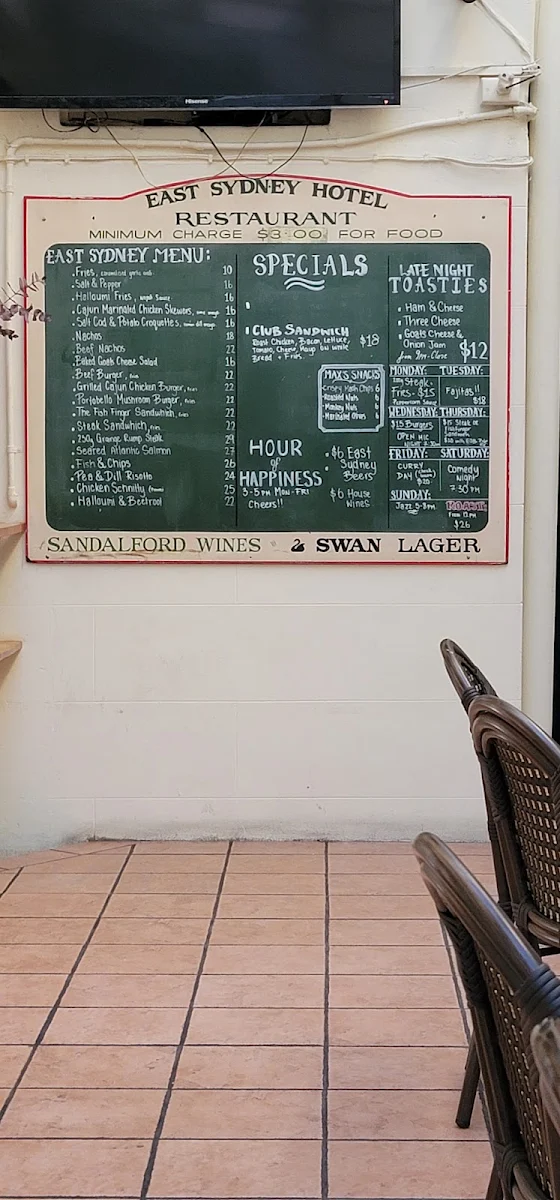 Hisense
EAST SYDNEY HOTEL
RESTAURANT
MINIMUM CHARGE $3.00 FOR FOOD
EAST SYDNEY MENU:
Fries, 10
Salt & Pepper 16
Halloumi Fries, 16
Cajun Marinated Chicken Skewers, 16
Salt Cod & Potato Croquettes, 16
Nachos 18
Beef Nachos 22
Baked Goats Cheese Salad 16
Beef Burger, 22
Grilled Cajun Chicken Burger, 22
Portobello Mushroom Burger, 22
The Fish Finger Sandwich, 22
Steak Sandwich, 22
250g Grange Rump Steak 29
Seared Atlantic Salmon 27
Fish & Chips 26
Pea & Dill Risotto 24
Chicken Schnitty 25
Halloumi & Beetroot 22
SPECIALS
CLUB SANDWICH $18
Roast Chicken, Bacon, Lettuce,
Tomato, Cheese, Mayo on white
Bread + Fries
MAX'S SNACKS
Crispy Hash Chips 6
Roasted Nuts
Marinated Olives
HOUR
of
HAPPINESS
5-5 PM MON-FRI
Cheers!!
$6 East
Sydney
Beers
$6 House
Wines
LATE NIGHT
TOASTIES
Ham & Cheese
Three Cheese
Goats Cheese &
Onion Jam
from 9pm-Close $12
MONDAY:
Steak
Fries - $15
TUESDAY:
Fajitas!!
$18
WEDNESDAY:
$15 Burgers
OPEN MIC
NIGHT
THURSDAY:
$15 Steak or
Sandwich
FRIDAY:
CURRY
DAY
$20
SATURDAY:
Comedy
Night
7:30 PM
SUNDAY:
Jazz 5-8pm
ROAST
From 12 PM
$26
SANDALFORD WINES SWAN LAGER